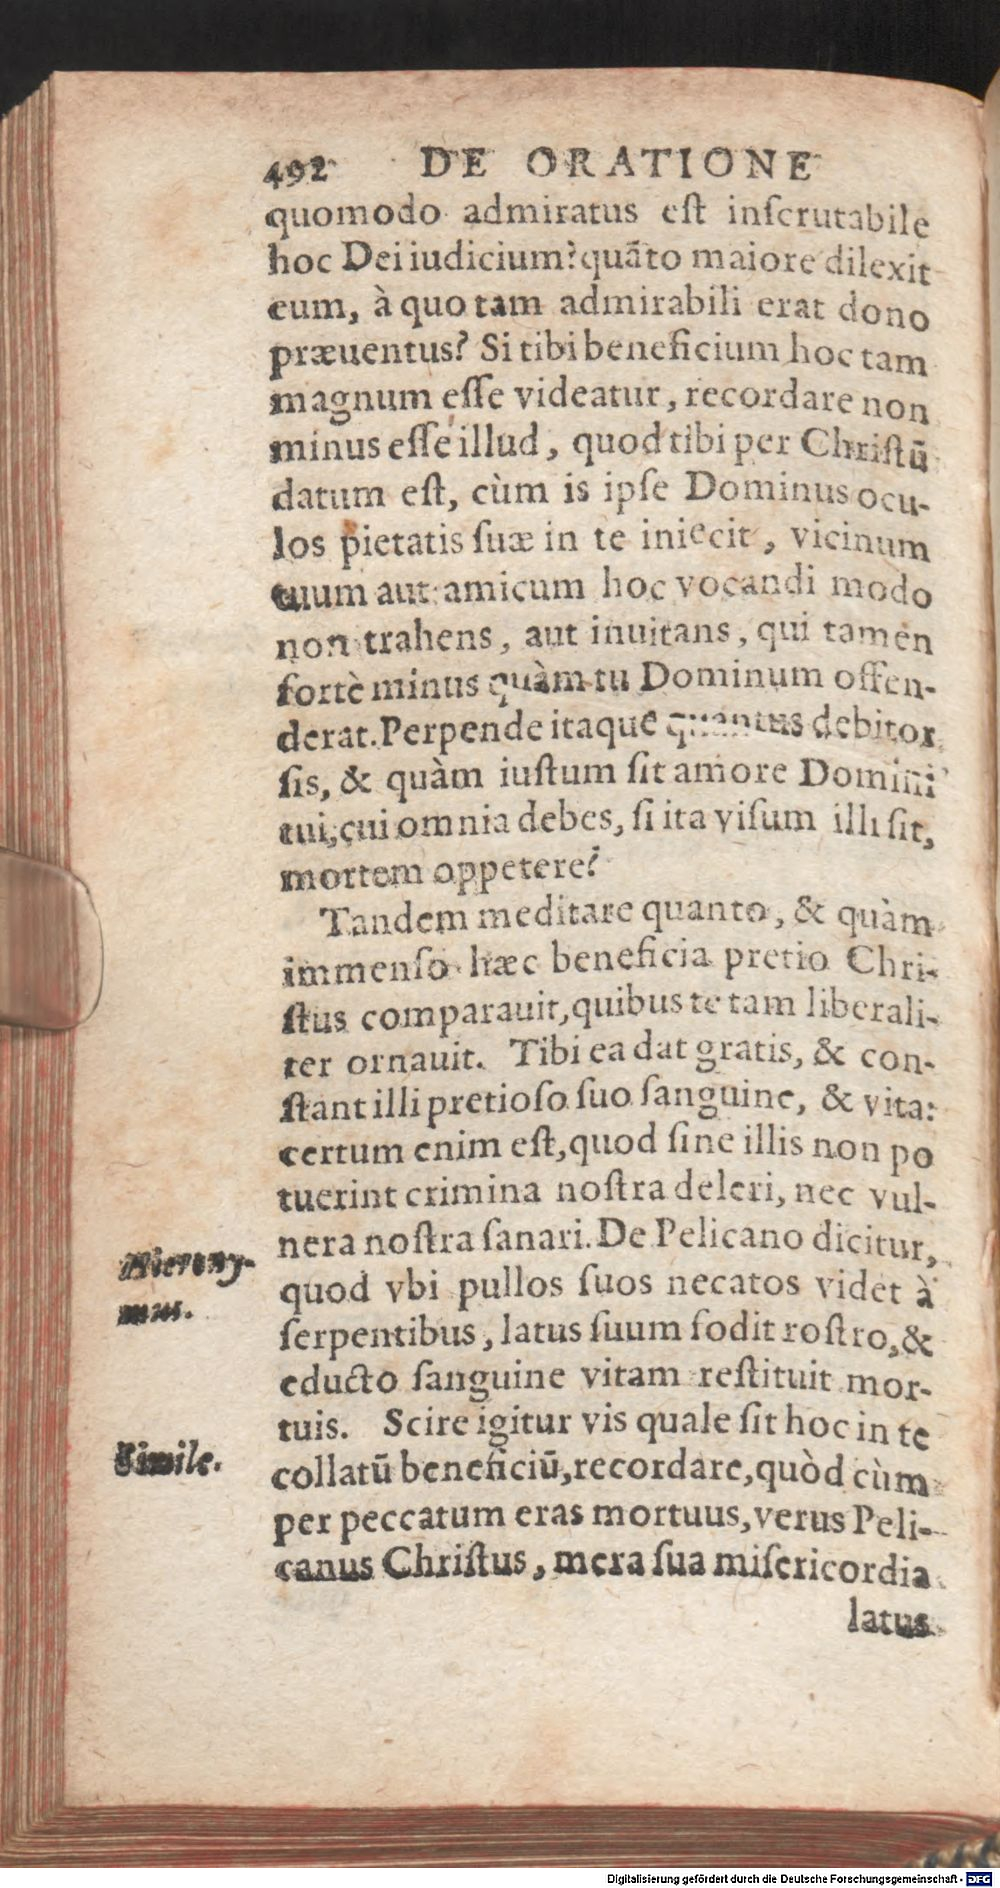 492 DE ORATIONE
quomodo admiratus eſt inſcrutabile
hoc Dei iudicium? quãto maiore dilexit
eum, à quo tam admirabili erat dono
præuentus? Si tibi beneficium hoc tam
magnum eſſe videatur, recordare non
minus eſſe illud, quod tibi per Chriſtũ
datum eſt, cùm is ipſe Dominus ocu-
los pietatis ſuæ in te iniecit, vicinum
tuum aut amicum hoc vocandi modo
non trahens, aut inuitans, qui tamen
fortè minus quàm tu Dominum offen-
derat. Perpende itaque quantus debitor
ſis, & quàm iuſtum ſit amore Domini
tui, cui omnia debes, ſi ita viſum illi ſit,
mortem oppetere?
Tandem meditare quanto, & quàm
immenſo hæc beneficia pretio Chri-
ſtus comparauit, quibus te tam liberali-
ter ornauit. Tibi ea dat gratis, & con-
ſtant illi pretioſo ſuo ſanguine, & vita:
certum enim eſt, quod ſine illis non po
tuerint crimina noſtra deleri, nec vul-
nera noſtra ſanari. De Pelicano dicitur,
Hierony-
mus.
quod vbi pullos ſuos necatos videt à
ſerpentibus, latus ſuum fodit roſtro, &
educto ſanguine vitam reſtituit mor-
tuis. Scire igitur vis quale ſit hoc in te
Simile.
collatũ beneficiũ, recordare, quòd cùm
per peccatum eras mortuus, verus Peli-
canus Chriſtus, mera ſua miſericordia
latus
Digitalisierung gefördert durch die Deutsche Forschungsgemeinschaft - DFG